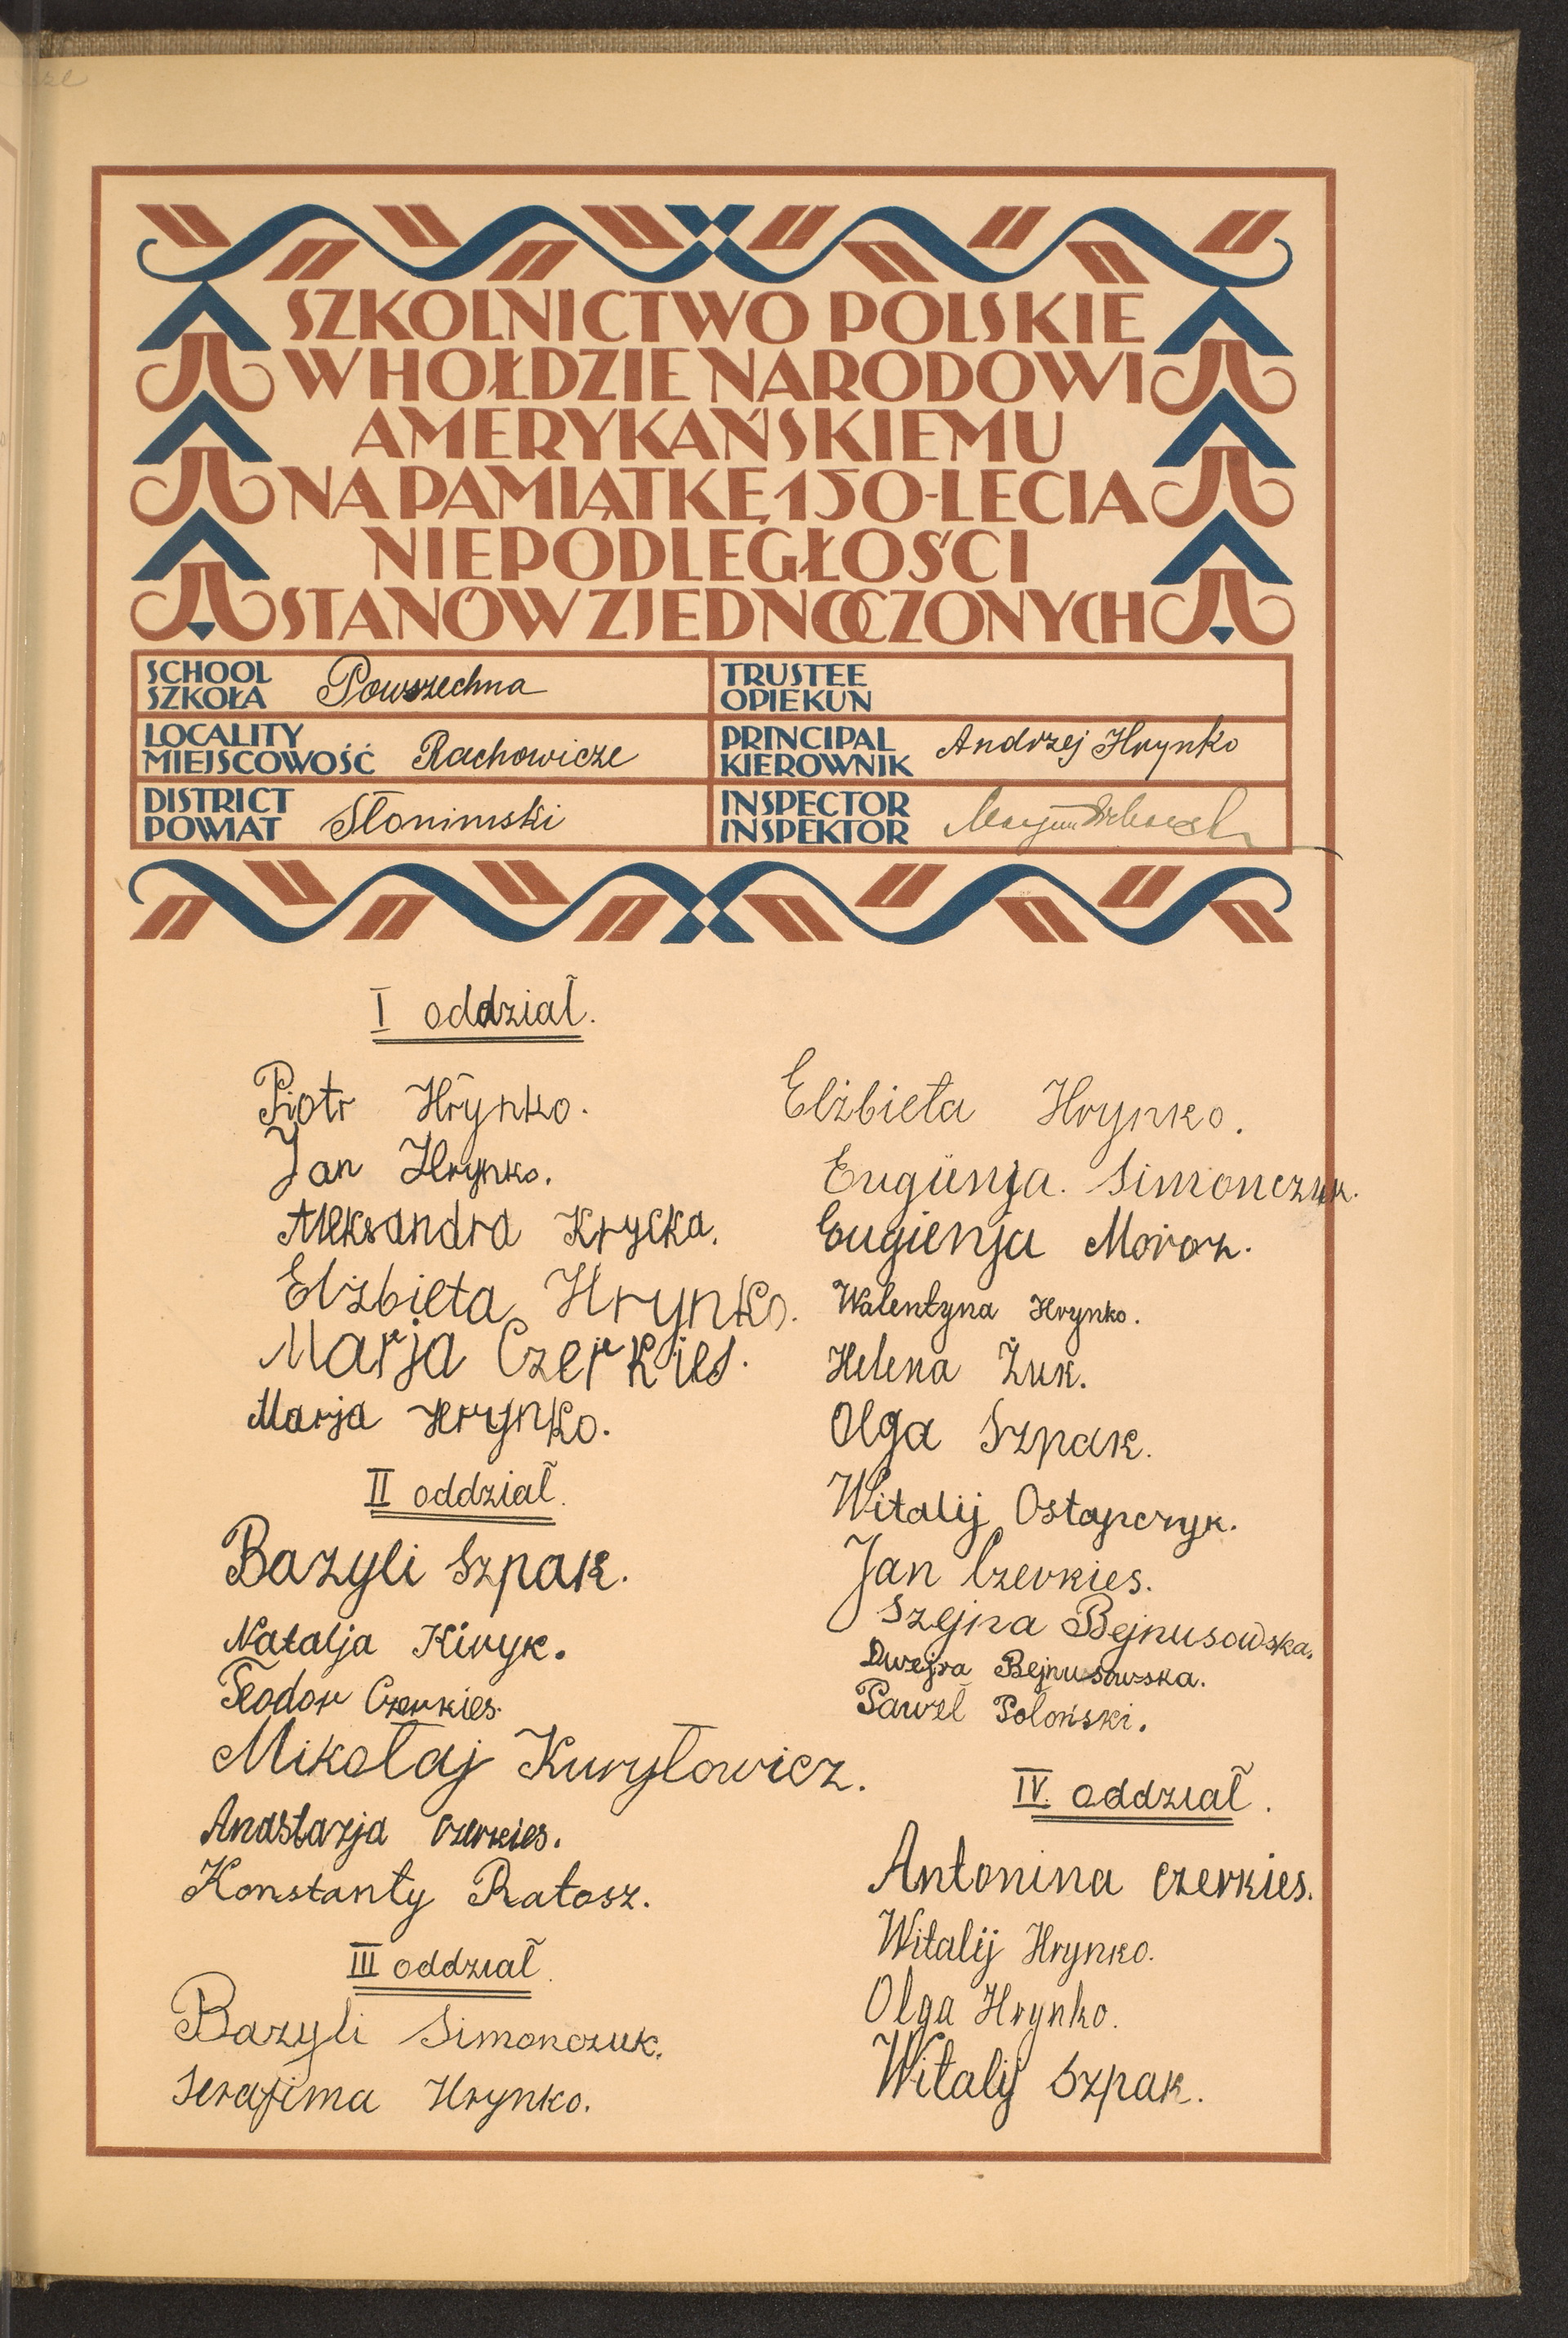 SZKOLNICTWO POLSKIE
W HOŁDZIE NARODOWI
AMERYKAŃSKIEMU
NA PAMIĄTKĘ 150-LECIA
NIEPODLEGŁOŚCI
STANÓW ZJEDNOCZONYCH
SCHOOL
SZKOŁA Powszechna
TRUSTEE
OPIEKUN
LOCALITY
MIEJSCOWOŚĆ Rachowicze
PRINCIPAL
KIEROWNIK Andrzej Hrynko
DISTRICT
POWIAT Słonimski
INSPECTOR
INSPEKTOR
I oddział.
Piotr Hrynko.
Jan Hrynko.
Aleksandra Krycka.
Elżbieta Hrynko.
Marja Czerkies.
Marja Hrynko.
II oddział.
Bazyli Szpak.
Natalja Kiryk.
Teodor Czerkies.
Mikołaj Kuryłowicz.
Anastazja Czerkies.
Konstanty Ratosz.
III oddział.
Bazyli Simonczuk.
Serafima Hrynko.
Elżbieta Hrynko.
Eugienja. Simonczuk.
Eugienja Moroz.
Walentyna Hrynko.
Helena Żuk.
Olga Szpak.
Witalij Ostapczyk.
Jan Czerkies.
Szejna Bejnusowska.
Dwejra Bejnusowska.
Paweł Poloński.
IV. oddział.
Antonina Czerkies.
Witalij Hrynko.
Olga Hrynko.
Witalij Szpak.